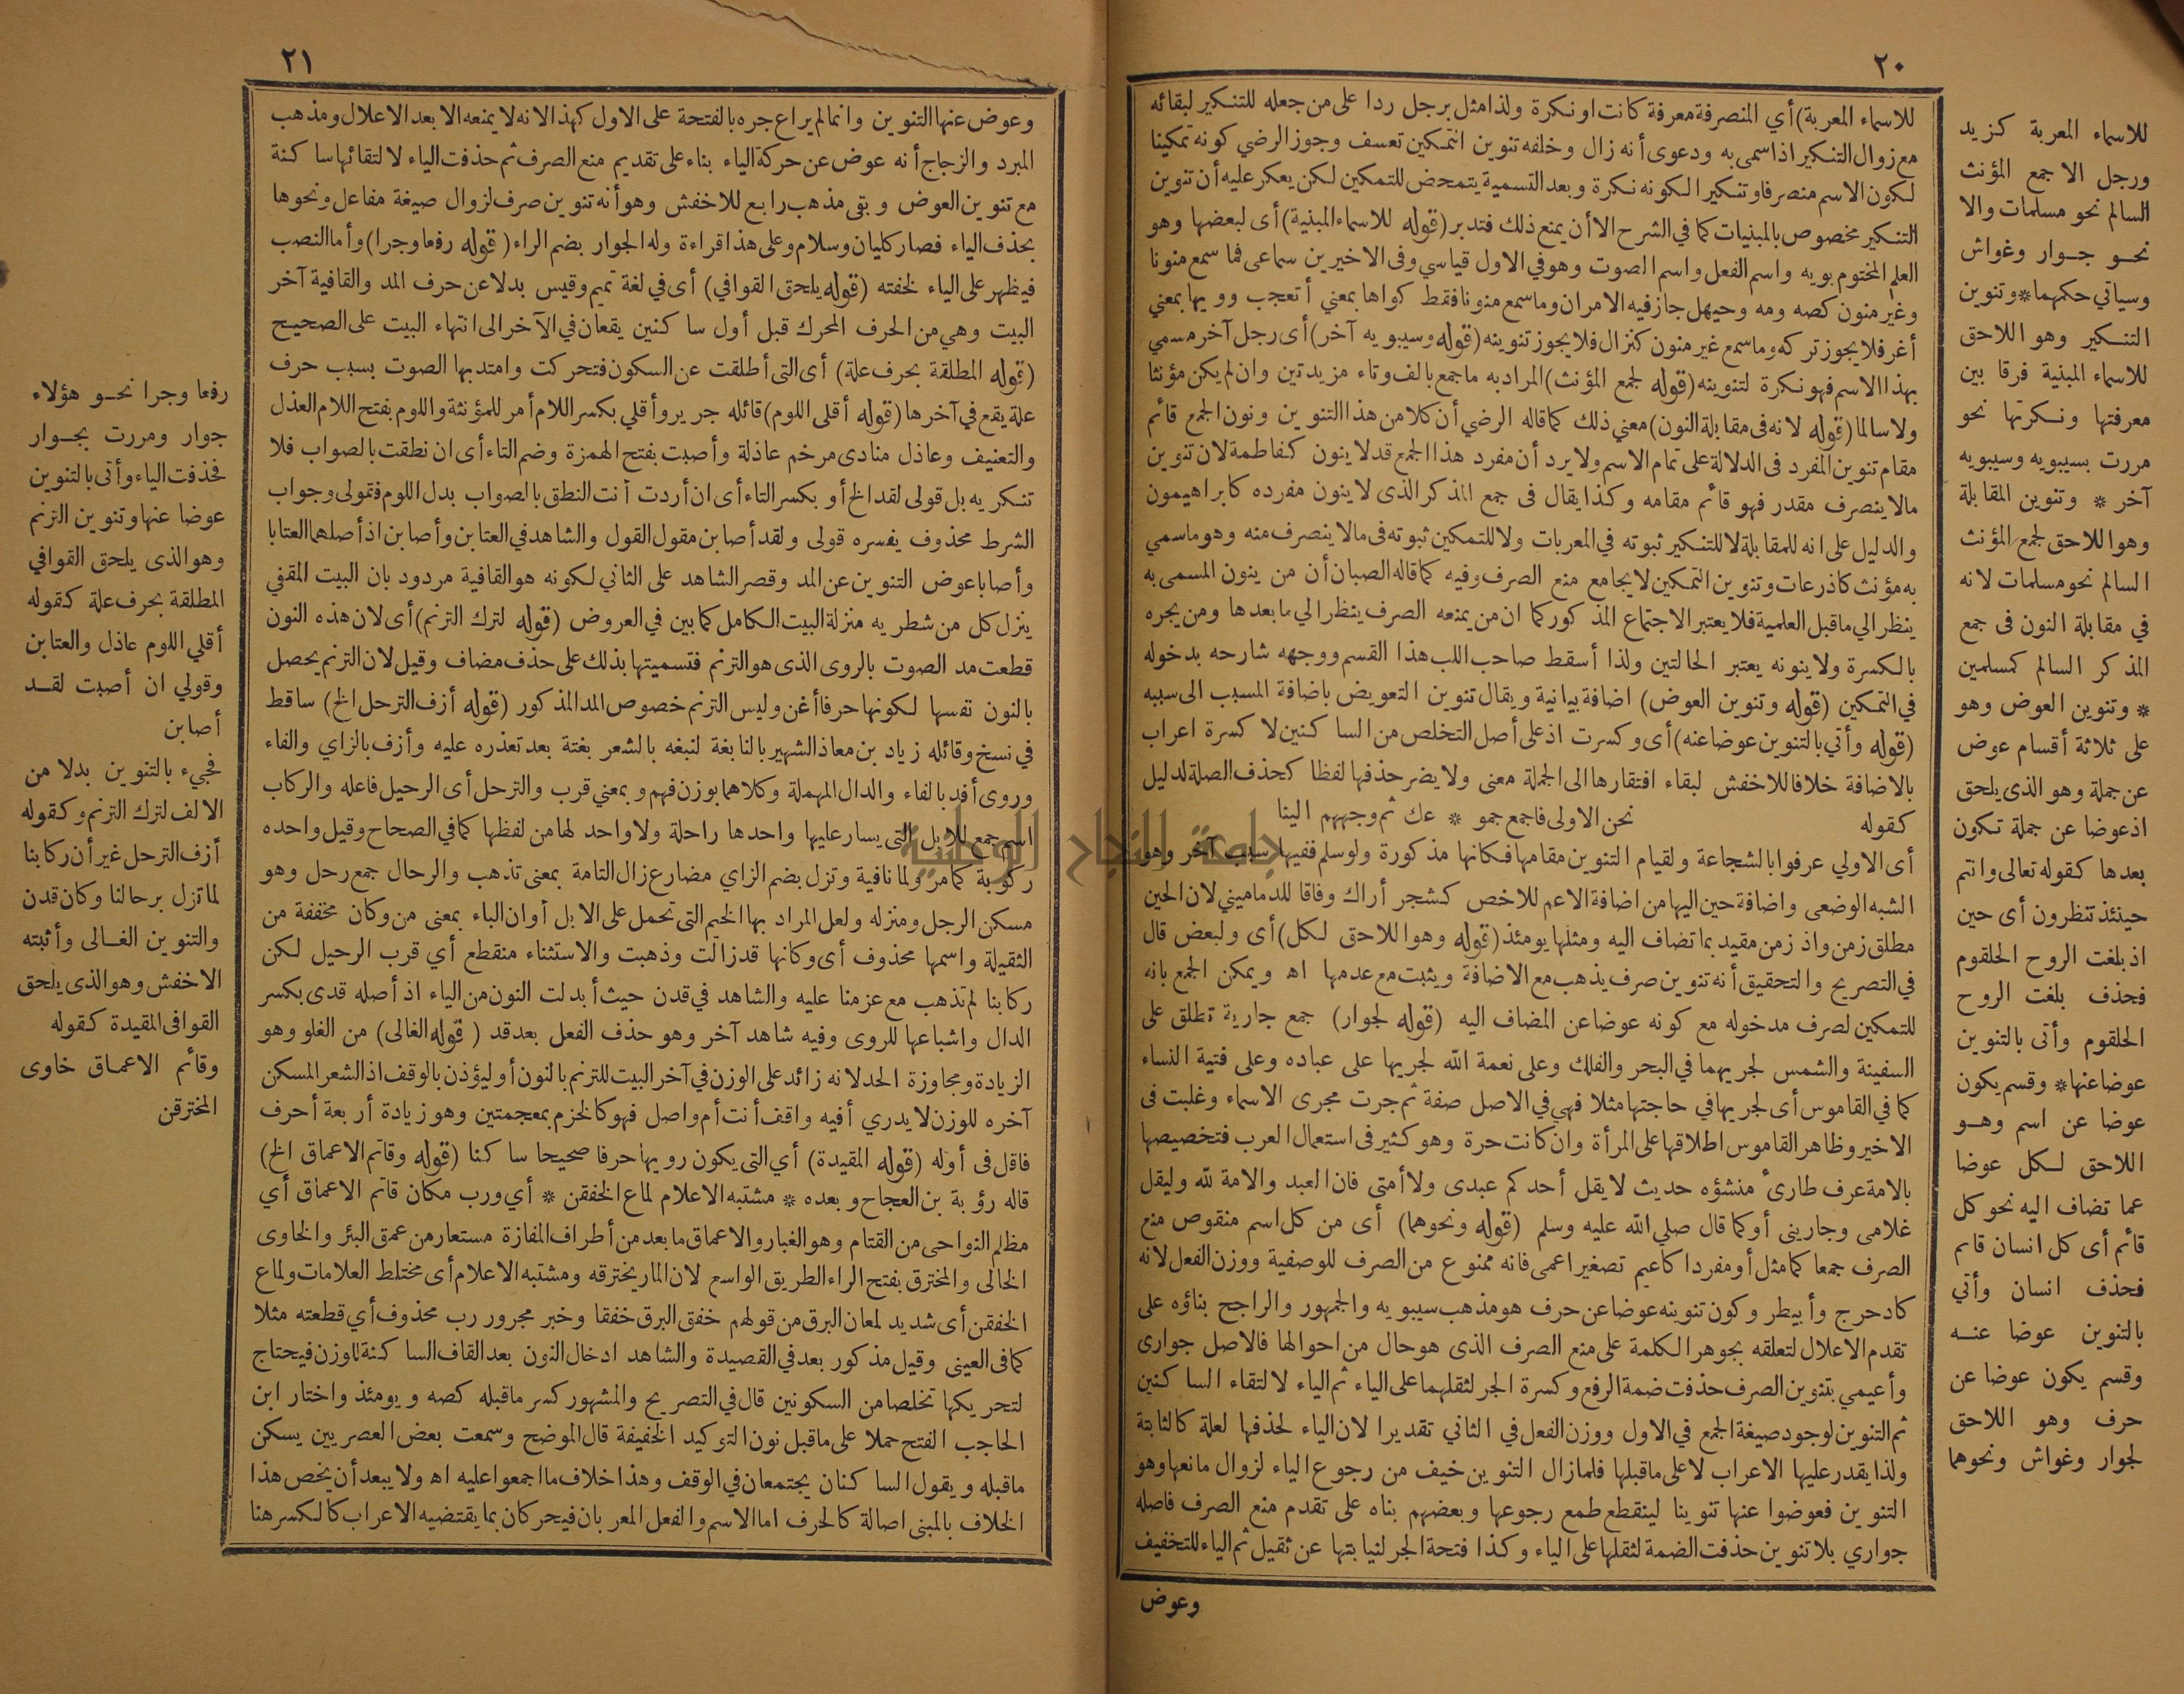 ٢٠
للاسماء المعربة) أي المنصرفة معرفة كانت او نكرة ولذا مثل برجل ردا على من جعله للتنكير لبقائه
مع زوال التنكير اذا سمى به ودعوى أنه زال وخلفه تنوين التمكين تعسف وجوز الرضي كونه تمكينا
لكون الاسم منصرفا وتنكيرا لكونه نكرة وبعد التسمية يتمحض للتمكين لكن يعكر عليه أن تنوين
التنكير مخصوص بالمبنيات كما في الشرح الا أن يمنع ذلك فتدبر (قوله للاسماء المبنية) أى لبعضها وهو
العلم المختوم بويه واسم الفعل واسم الصوت وهو في الاول قياسي وفى الاخيرين سماعى فما سمع منونا
وغير منون كصه ومه وحيهل جاز فيه الامران وما سمع منونا فقط كواها بمعني أتعجب وويها بمعني
أغر فلا يجوز تركه وما سمع غير منون كنزال فلا يجوز تنوينه (قوله وسيبويه آخر) أى رجل آخر مسمي
بهذا الاسم فهو نكرة لتنوينه (قوله لجمع المؤنث) المراد به ما جمع بالف وتاء مزيدتين وان لم يكن مؤنثا
ولا سالما (قوله لانه فى مقابلة النون) معني ذلك كما قاله الرضي أن كلا من هذا التنوين ونون الجمع قائم
مقام تنوين المفرد فى الدلالة على تمام الاسم ولا يرد أن مفرد هذا الجمع قد لا ينون كفاطمة لان تنوين
مالا ينصرف مقدر فهو قائم مقامه وكذا يقال فى جمع المذكر الذى لا ينون مفرده كابراهيمون
والدليل على انه للمقابلة لا للتنكير ثبوته في المعربات ولا للتمكين ثبوته فى مالا ينصرف منه وهو ما سمي
به مؤنث كاذرعات وتنوين التمكين لا يجامع منع الصرف وفيه كما قاله الصبان أن من ينون المسمى به
ينظر الي ما قبل العلمية فلا يعتبر الاجتماع المذكور كما ان من يمنعه الصرف ينظر الي ما بعدها ومن يجره
بالكسرة ولا ينونه يعتبر الحالتين ولذا أسقط صاحب اللب هذا القسم ووجهه شارحه بدخوله
في التمكين (قوله وتنوين العوض) اضافة بيانية ويقال تنوين التعويض باضافة المسبب الى سببه
(قوله وأتي بالتنوين عوضا عنه) أى وكسرت اذ على أصل التخلص من الساكنين لا كسرة اعراب
بالاضافة خلافا للاخفش لبقاء افتقارها الى الجملة معنى ولا يضر حذفها لفظا كحذف الصلة لدليل
كقوله نحن الاولى فاجمع جمو * عك ثم وجههم الينا
أى الاولي عرفوا بالشجاعة ولقيام التنوين مقامها فكانها مذكورة ولو سلم ففيها سبب آخر وهو
الشبه الوضعى واضافة حين اليها من اضافة الاعم للاخص كشجر أراك وفاقا للدماميني لان الحين
مطلق زمن واذ زمن مقيد بما تضاف اليه ومثلها يومئذ (قوله وهو اللاحق لكل) أى ولبعض قال
في التصريح والتحقيق أنه تنوين صرف يذهب مع الاضافة ويثبت مع عدمها اه ويمكن الجمع بانه
للتمكين لصرف مدخوله مع كونه عوضا عن المضاف اليه (قوله لجوار) جمع جارية تطلق على
السفينة والشمس لجريهما في البحر والفلك وعلى نعمة الله لجريها على عباده وعلى فتية النساء
كما في القاموس أى لجريها في حاجتها مثلا فهي في الاصل صفة ثم جرت مجرى الاسماء وغلبت فى
الاخير وظاهر القاموس اطلاقها على المرأة وان كانت حرة وهو كثير فى استعمال العرب فتخصيصها
بالامة عرف طارئ منشؤه حديث لا يقل أحدكم عبدى ولا أمتى فان العبد والامة لله وليقل
غلامى وجاريتى أو كما قال صلي الله عليه وسلم (قوله ونحوهما) أى من كل اسم منقوص منع
الصرف جمعا كما مثل أو مفردا كاعيم تصغير اعمى فانه ممنوع من الصرف للوصفية ووزن الفعل لانه
كادحرج وأبيطر وكون تنوينه عوضا عن حرف هو مذهب سيبويه والجمهور والراجح بناؤه على
تقدم الاعلال لتعلقه بجوهر الكلمة على منع الصرف الذى هو حال من احوالها فالاصل جوارى
وأعيمي بتنوين الصرف حذفت ضمة الرفع وكسرة الجر لثقلهما على الياء ثم الياء لالتقاء الساكنين
ثم التنوين لوجود صيغة الجمع في الاول ووزن الفعل في الثاني تقديرا لان الياء لحذفها لعلة كالثابتة
ولذا يقدر عليها الاعراب لا على ما قبلها فلما زال التنوين خيف من رجوع الياء لزوال مانعها وهو
التنوين فعوضوا عنها تنوينا لينقطع طمع رجوعها وبعضهم بناه على تقدم منع الصرف فاصله
جواري بلا تنوين حذفت الضمة لثقلها على الياء وكذا فتحة الجر لنيابتها عن ثقيل ثم الياء للتخفيف
وعوض
للاسماء المعربة كزيد
ورجل الا جمع المؤنث
السالم نحو مسلمات والا
نحو جوار وغواش
وسياتي حكمهما * وتنوين
التنكير وهو اللاحق
للاسماء المبنية فرقا بين
معرفتها ونكرتها نحو
مررت بسيبويه وسيبويه
آخر * وتنوين المقابلة
وهو اللاحق لجمع المؤنث
السالم نحو مسلمات لانه
في مقابلة النون فى جمع
المذكر السالم كمسلمين
* وتنوين العوض وهو
على ثلاثة أقسام عوض
عن جملة وهو الذى يلحق
اذ عوضا عن جملة تكون
بعدها كقوله تعالى وانتم
حينئذ تنظرون أى حين
اذ بلغت الروح الحلقوم
فحذف بلغت الروح
الحلقوم وأتى بالتنوين
عوضا عنها * وقسم يكون
عوضا عن اسم وهو
اللاحق لكل عوضا
عما تضاف اليه نحو كل
قائم أى كل انسان قائم
فحذف انسان وأتي
بالتنوين عوضا عنه
وقسم يكون عوضا عن
حرف وهو اللاحق
لجوار وغواش ونحوهما
٢١
وعوض عنها التنوين وانما لم يراع جره بالفتحة على الاول كهذا لانه لا يمنعه الا بعد الاعلال ومذهب
المبرد والزجاج أنه عوض عن حركة الياء بناء على تقديم منع الصرف ثم حذفت الياء لالتقائها ساكنة
مع تنوين العوض وبقى مذهب رابع للاخفش وهو أنه تنوين صرف لزوال صيغة مفاعل ونحوها
بحذف الياء فصار كليان وسلام وعلى هذا قراءة وله الجوار بضم الراء (قوله رفعا وجرا) وأما النصب
فيظهر على الياء لخفته (قوله يلحق القوافي) أى في لغة تميم وقيس بدلا عن حرف المد والقافية آخر
البيت وهي من الحرف المحرك قبل أول ساكنين يقعان في الآخر الى انتهاء البيت على الصحيح
(قوله المطلقة بحرف علة) أى التى أطلقت عن السكون فتحركت وامتد بها الصوت بسبب حرف
علة يقع في آخرها (قوله أقلى اللوم) قائله جرير وأقلي بكسر اللام أمر للمؤنثة واللوم بفتح اللام العذل
والتعنيف وعاذل منادى مرخم عاذلة وأصبت بفتح الهمزة وضم التاء أى ان نطقت بالصواب فلا
تنكريه بل قولى لقد الخ أو بكسر التاء أى ان أردت أنت النطق بالصواب بدل اللوم فقولى وجواب
الشرط محذوف يفسره قولى ولقد أصابن مقول القول والشاهد في العتابن وأصابن اذ أصلهما العتابا
وأصابا عوض التنوين عن المد وقصر الشاهد على الثاني لكونه هو القافية مردود بان البيت المقفي
ينزل كل من شطريه منزلة البيت الكامل كما بين في العروض (قوله لترك الترنم) أى لان هذه النون
قطعت مد الصوت بالروى الذى هو الترنم فتسميتها بذلك على حذف مضاف وقيل لان الترنم يحصل
بالنون نفسها لكونها حرفا أغن وليس الترنم خصوص المد المذكور (قوله أزف الترحل الخ) ساقط
في نسخ وقائله زياد بن معاذ الشهير بالنابغة لنبغه بالشعر بغتة بعد تعذره عليه وأزف بالزاي والفاء
وروى أفد بالفاء والدال المهملة وكلاهما بوزن فهم وبمعني قرب والترحل أى الرحيل فاعله والركاب
اسم جمع للابل التى يسار عليها واحدها راحلة ولا واحد لها من لفظها كما في الصحاح وقيل واحده
ركوبة كما مر ولما نافية وتزل بضم الزاي مضارع زال التامة بمعنى تذهب والرحال جمع رحل وهو
مسكن الرجل ومنزله ولعل المراد بها الخيم التى تحمل على الابل أو ان الباء بمعنى من وكان مخففة من
الثقيلة واسمها محذوف أى وكانها قد زالت وذهبت والاستثناء منقطع أي قرب الرحيل لكن
ركابنا لم تذهب مع عزمنا عليه والشاهد في قدن حيث أبدلت النون من الياء اذ أصله قدى بكسر
الدال واشباعها للروى وفيه شاهد آخر وهو حذف الفعل بعد قد (قوله الغالى) من الغلو وهو
الزيادة ومجاوزة الحد لانه زائد على الوزن في آخر البيت للترنم بالنون أو ليؤذن بالوقف اذ الشعر المسكن
آخره للوزن لا يدري أفيه واقف أنت أم واصل فهو كالخزم بمعجمتين وهو زيادة أربعة أحرف
فاقل فى أوله (قوله المقيدة) أي التى يكون رويها حرفا صحيحا ساكنا (قوله وقاتم الاعماق الخ)
قاله رؤبة بن العجاج وبعده * مشتبه الاعلام لماع الخفقن * أي ورب مكان قاتم الاعماق أي
مظلم النواحى من القتام وهو الغبار والاعماق ما بعد من أطراف المفازة مستعار من عمق البئر والخاوى
الخالى والمخترق بفتح الراء الطريق الواسع لان المار يخترقه ومشتبه الاعلام أى مختلط العلامات ولماع
الخفقن أى شديد لمعان البرق من قولهم خفق البرق خفقا وخبر مجرور رب محذوف أي قطعته مثلا
كما فى العينى وقيل مذكور بعد في القصيدة والشاهد ادخال النون بعد القاف الساكنة للوزن فيحتاج
لتحريكها تخلصا من السكونين قال في التصريح والمشهور كسر ما قبله كصه ويومئذ واختار ابن
الحاجب الفتح حملا على ما قبل نون التوكيد الخفيفة قال الموضح وسمعت بعض العصريين يسكن
ما قبله ويقول الساكنان يجتمعان في الوقف وهذا خلاف ما اجمعوا عليه اه ولا يبعد أن يخص هذا
الخلاف بالمبنى اصالة كالحرف اما الاسم والفعل المعربان فيحركان بما يقتضيه الاعراب كالكسر هنا
رفعا وجرا نحو هؤلاء
جوار ومررت بجوار
فحذفت الياء وأتى بالتنوين
عوضا عنها وتنوين الترنم
وهو الذى يلحق القوافي
المطلقة بحرف علة كقوله
أقلي اللوم عاذل والعتابن
وقولي ان أصبت لقد
أصابن
فجيء بالتنوين بدلا من
الالف لترك الترنم وكقوله
أزف الترحل غير أن ركابنا
لما تزل برحالنا وكان قدن
والتنوين الغالى وأثبته
الاخفش وهو الذى يلحق
القوافى المقيدة كقوله
وقائم الاعماق خاوى
المخترقن
جامعة النجاح الوطنية